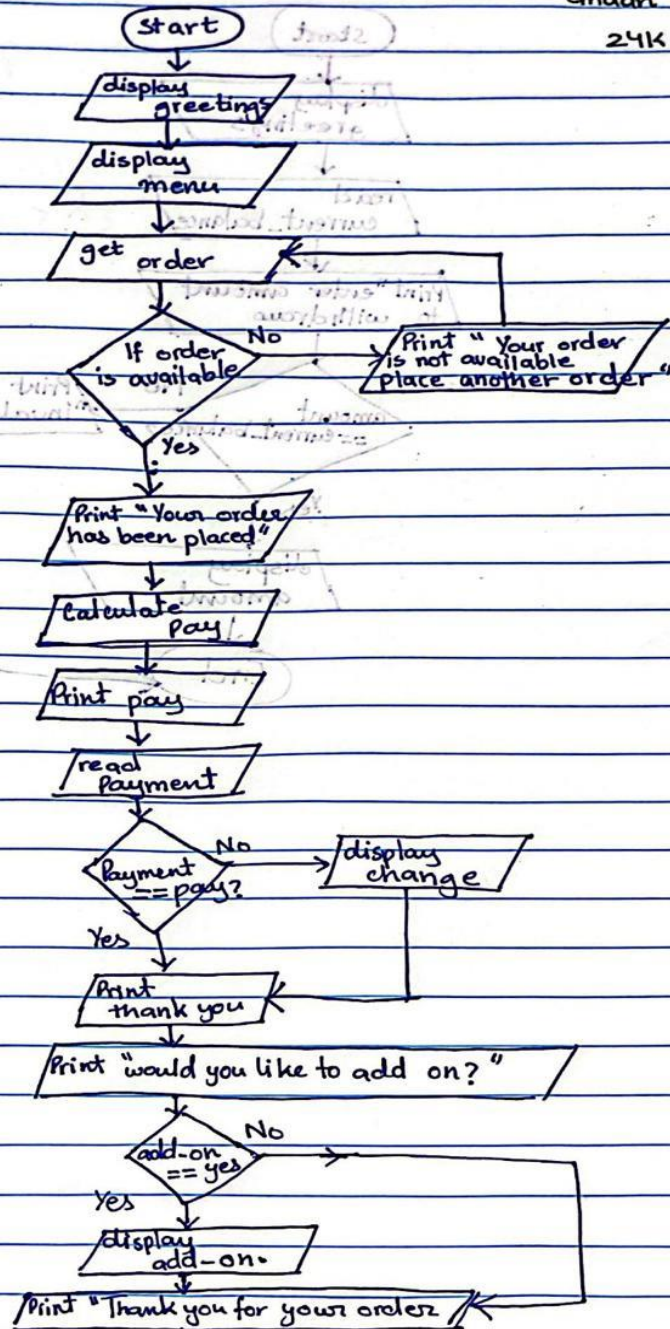 24K
Start
display
greetings
display
menu
get order
If order
is available
No
Print "Your order
is not available
place another order"
Yes
Print "Your order
has been placed"
Calculate
Pay
Print pay
read
Payment
Payment
== pay?
No
display
change
Yes
Print
thank you
Print "would you like to add on?"
add-on
== yes
No
Yes
display
add-on.
Print "Thank you for your order